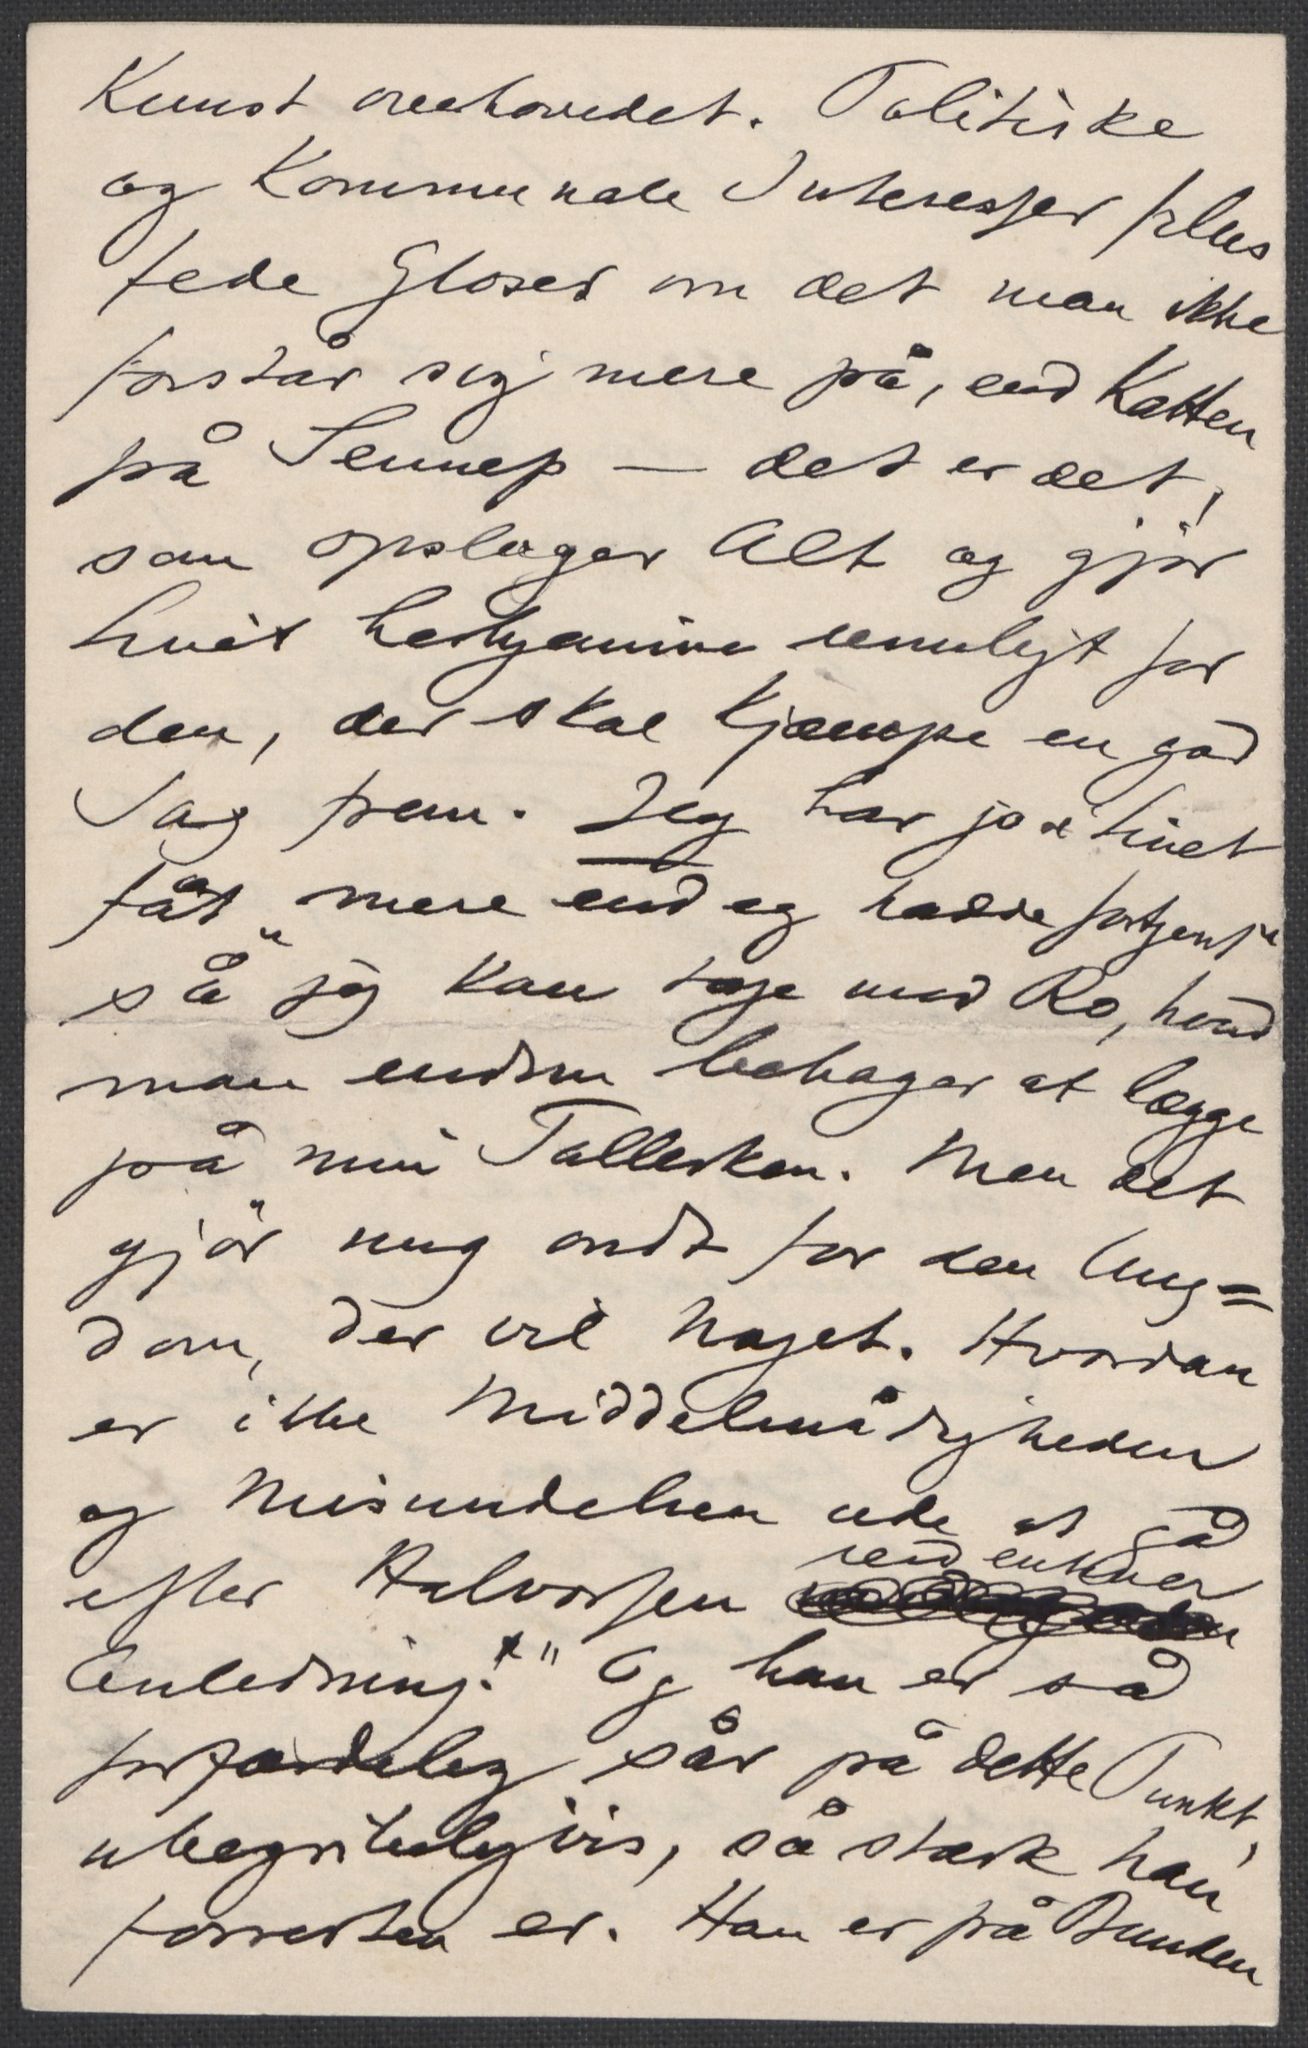 Kunst overhovedet. Politiske
og Kommunale Interesser plus
fede Gloser om det man ikke
forstår sig mere på, end Katten
på Sennep — det er det,
som opsluger Alt og gjør
livet umuligt for
den, der skal kjæmpe en god
Sag frem. Jeg har jo i livet
fåt "mere end eg hadde fortjent"
så jeg kan tage med Ro, hvad
man endnu behager at lægge
på min Tallerken. Men det
gjör mig ondt for den Ung=
dom, der vil Noget. Hvordan
er ikke Middelmådigheden
og Misundelsen ude at gå
ved enhver
efter Halvorsen
Anledning!" Og han er så
forfærdelig sår på dette Punkt,
ubegribeligvis, så stærk han
forresten er. Han er på Bunden